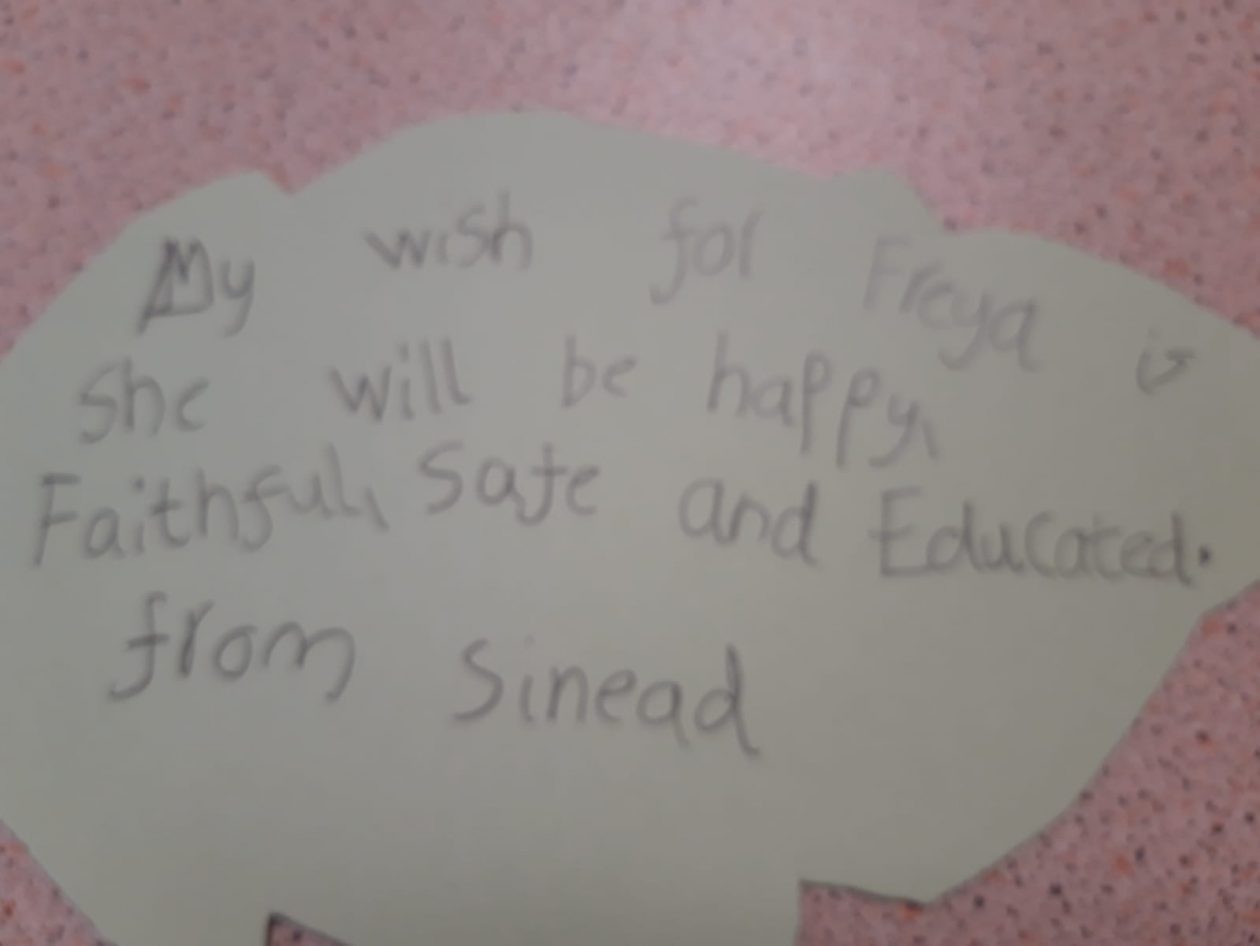 My wish for Freya is
she will be happy,
Faithful, Safe and Educated.
from Sinead